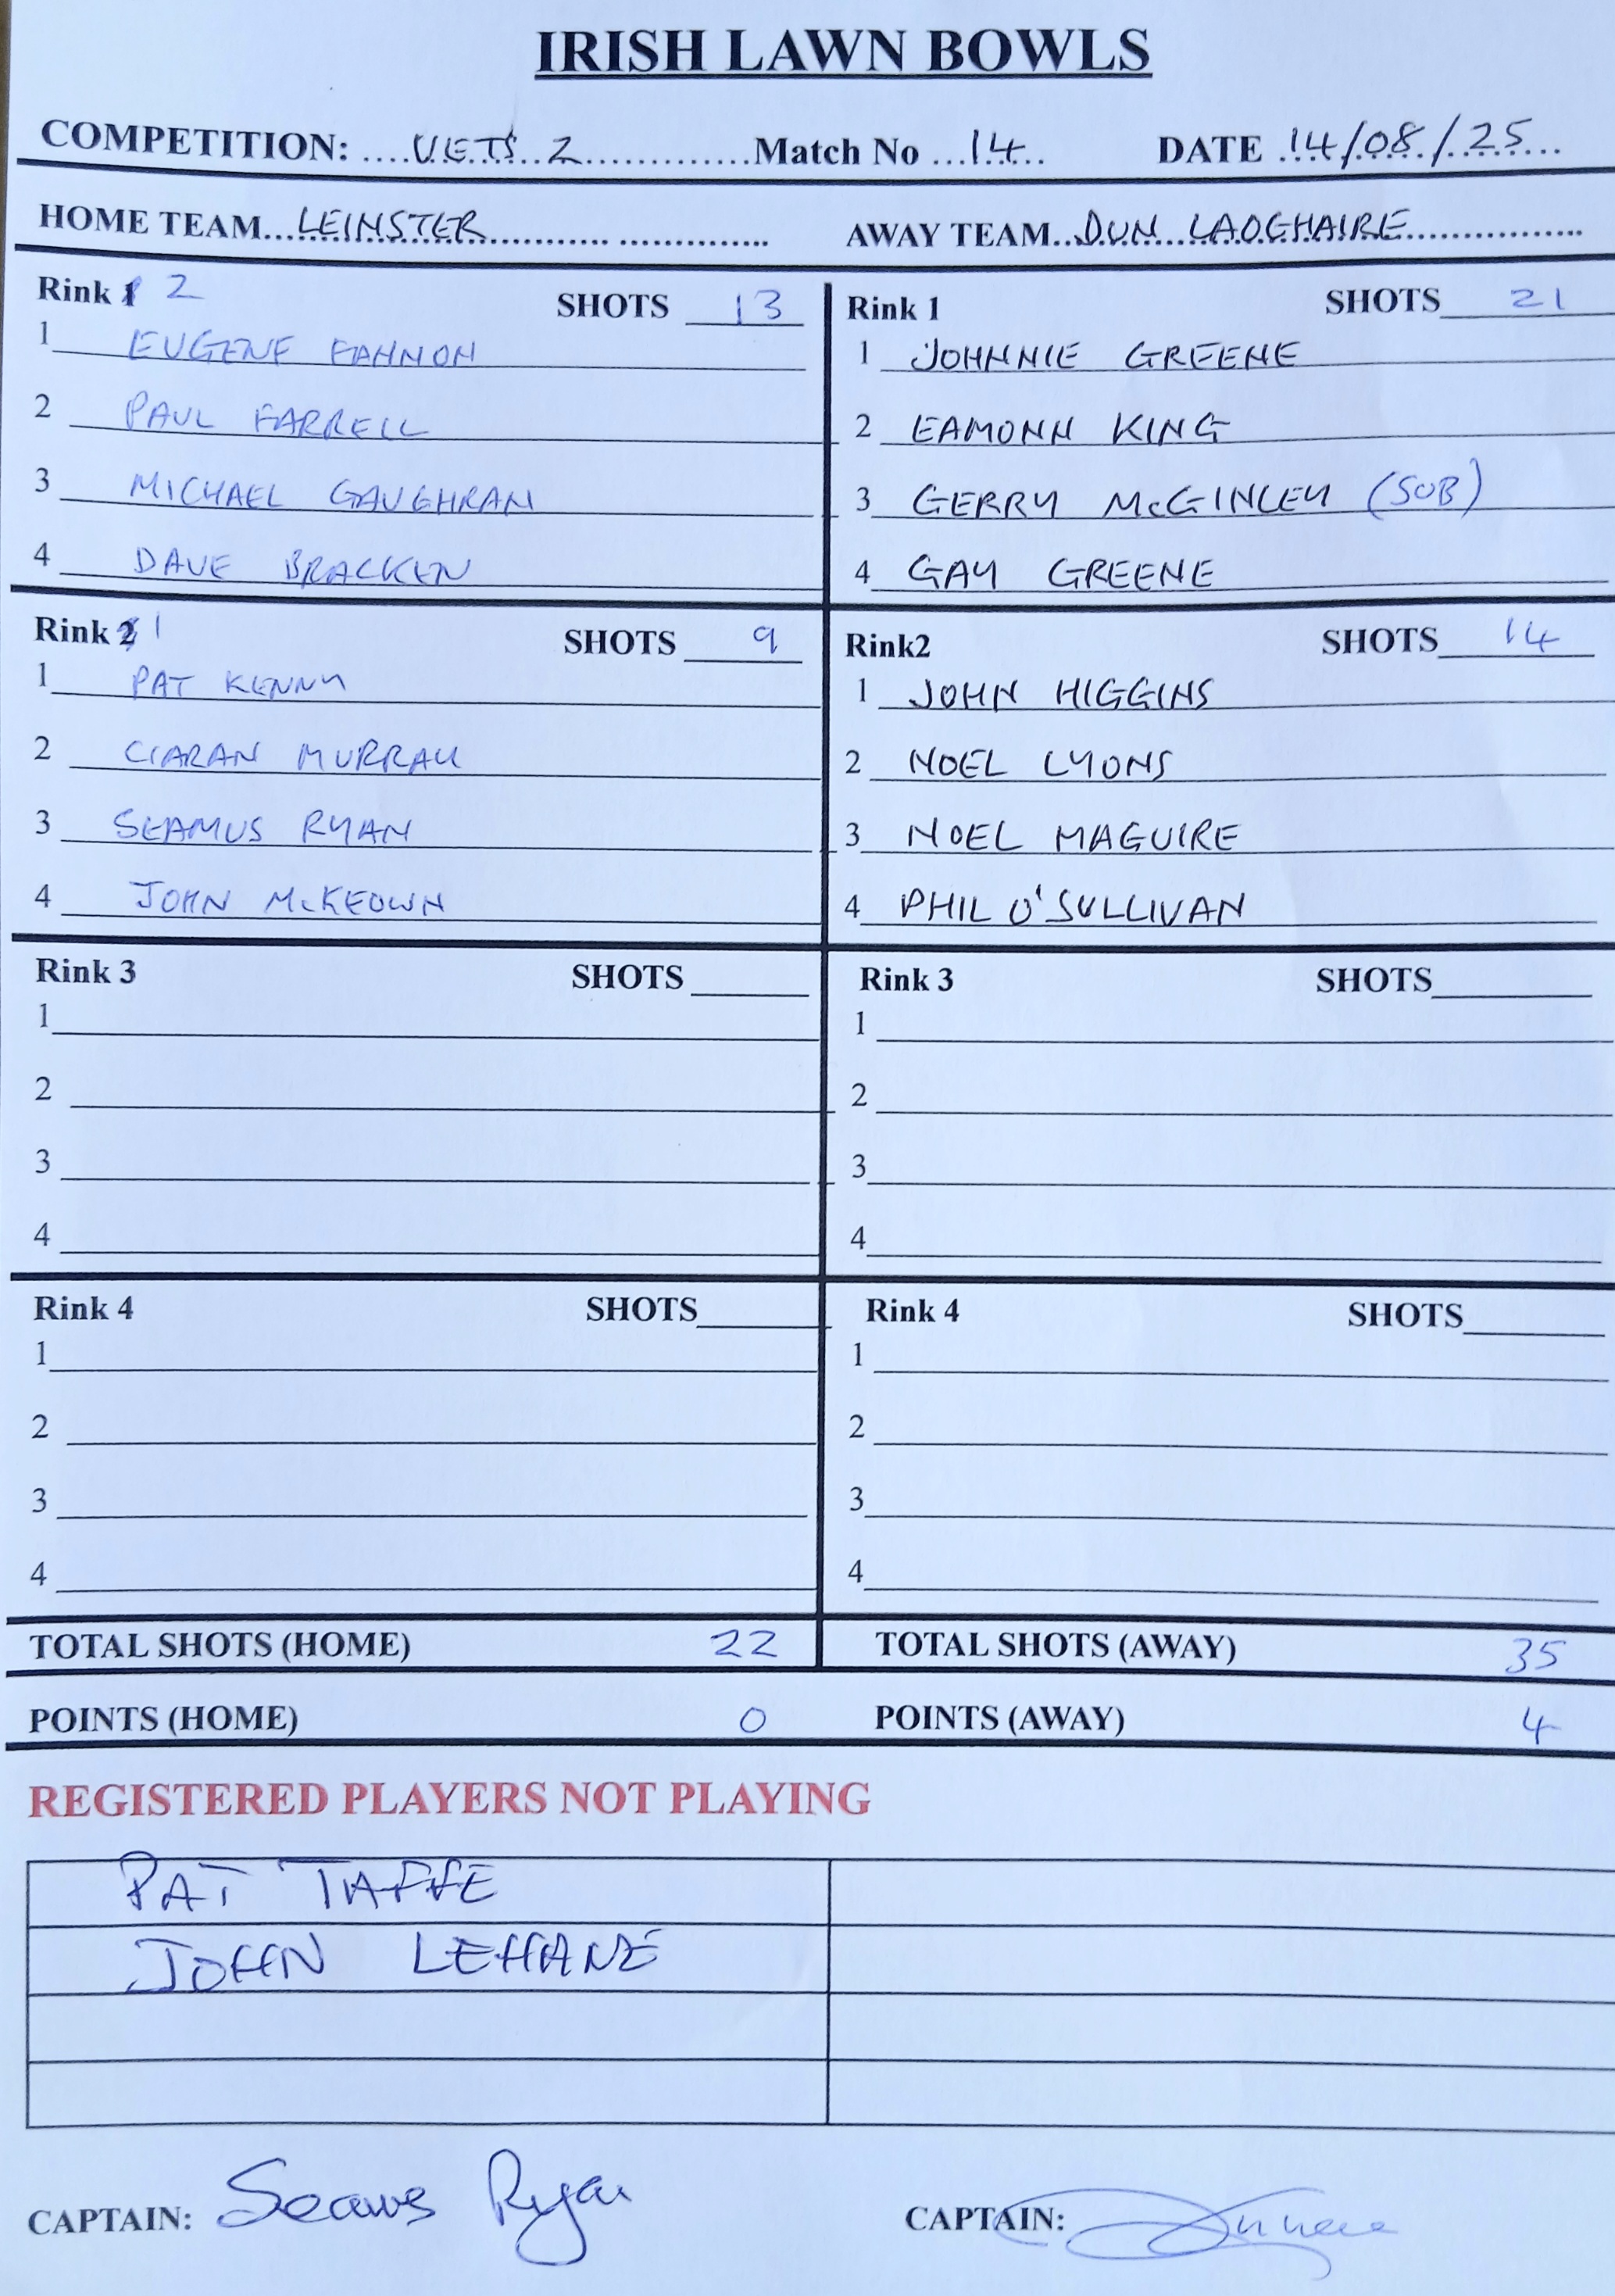 IRISH LAWN BOWLS
COMPETITION: ....VETS 2.............Match No ...14... DATE 14/08/25...
HOME TEAM...LEINSTER............ ............. AWAY TEAM..DUN LAOGHAIRE...............
Rink 1 2 SHOTS 13
1 EUGENE FANNON
2 PAUL FARRELL
3 MICHAEL GAUGHRAN
4 DAVE BRACKEN
Rink 1 SHOTS 21
1 JOHNNIE GREENE
2 EAMONN KING
3 GERRY McGINLEY (SUB)
4 GAY GREENE
Rink 2 1 SHOTS 9
1 PAT KENNY
2 CIARAN MURRAY
3 SEAMUS RYAN
4 JOHN McKEOWN
Rink2 SHOTS 14
1 JOHN HIGGINS
2 NOEL LYONS
3 NOEL MAGUIRE
4 PHIL O'SULLIVAN
Rink 3 SHOTS
1
2
3
4
Rink 3 SHOTS
1
2
3
4
Rink 4 SHOTS
1
2
3
4
Rink 4 SHOTS
1
2
3
4
TOTAL SHOTS (HOME) 22 TOTAL SHOTS (AWAY) 35
POINTS (HOME) 0 POINTS (AWAY) 4
REGISTERED PLAYERS NOT PLAYING
PAT TAFFE
JOHN LEHANE
CAPTAIN: Seamus Ryan CAPTAIN: